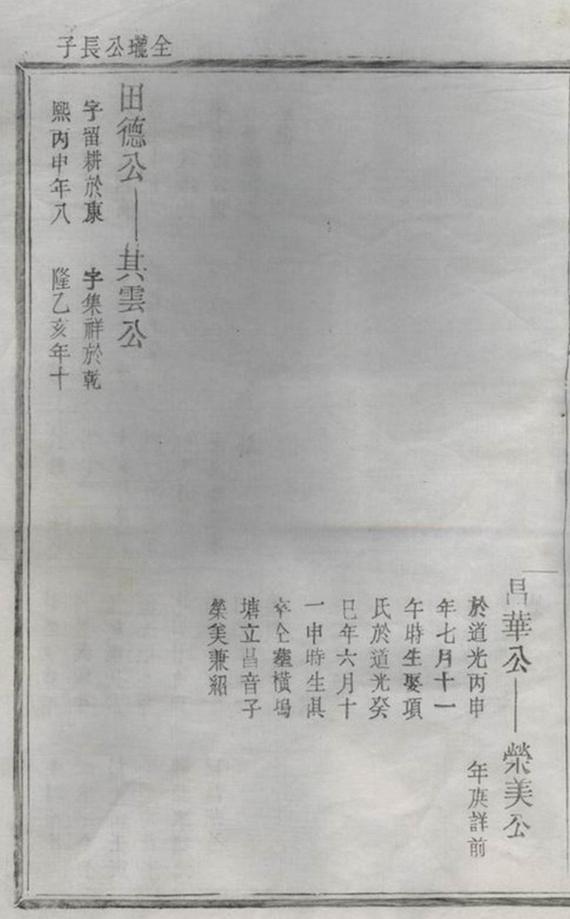 全瓏公長子
昌華公——榮美公
於道光丙申
年七月十一
午時生娶項
氏於道光癸
巳年六月十
一申時生俱
卒仝塟橫塢
塘立昌音子
榮美兼紹
年庚詳前
田德公——其雲公
字留耕於康
熙丙申年八
字集祥於乾
隆乙亥年十